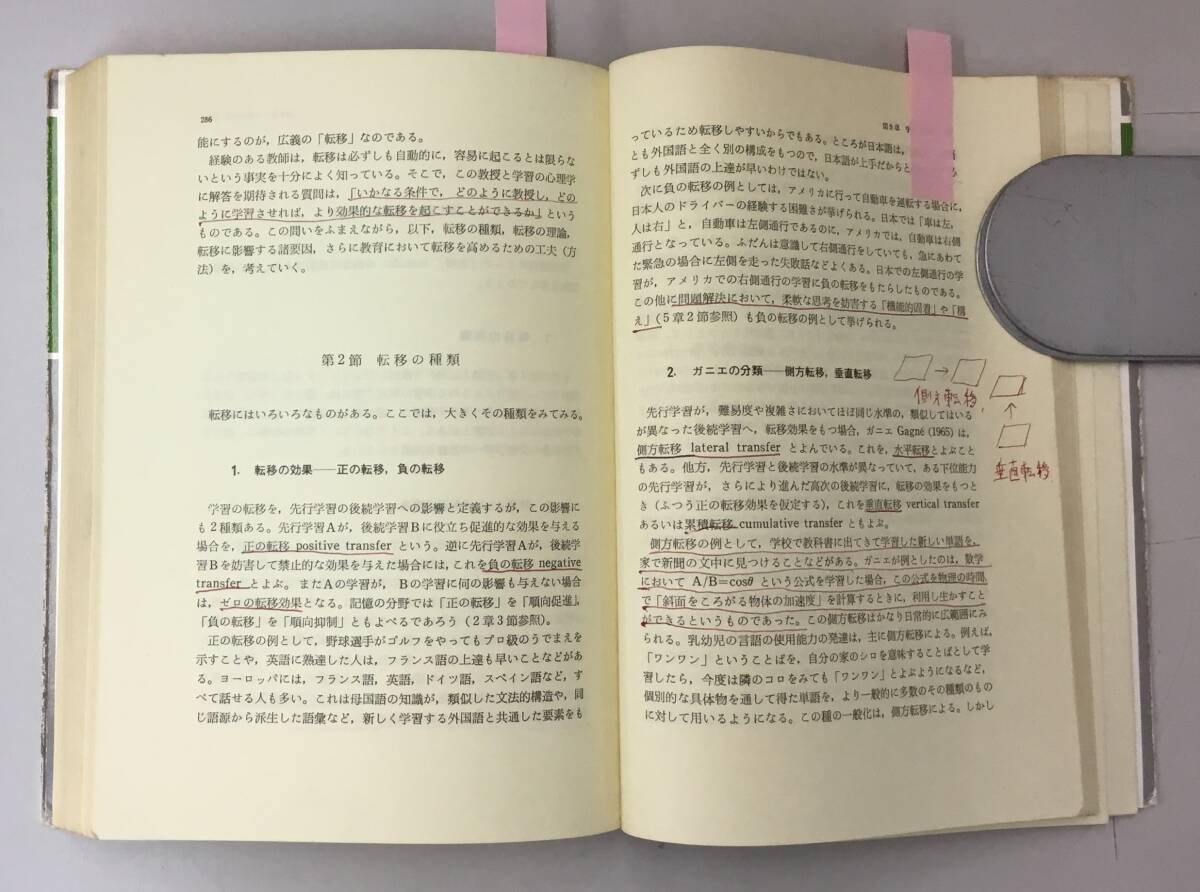 286
能にするのが，広義の「転移」なのである。
経験のある教師は，転移は必ずしも自動的に，容易に起こるとは限らな
いという事実を十分によく知っている。そこで，この教授と学習の心理学
に解答を期待される質問は，「いかなる条件で，どのように教授し，どの
ように学習させれば，より効果的な転移を起こすことができるか」という
ものである。この問いをふまえながら，以下，転移の種類，転移の理論，
転移に影響する諸要因，さらに教育において転移を高めるための工夫（方
法）を，考えていく。
第2節 転移の種類
転移にはいろいろなものがある。ここでは，大きくその種類をみてみる。
1. 転移の効果——正の転移，負の転移
学習の転移を，先行学習の後続学習への影響と定義するが，この影響に
も2種類ある。先行学習Aが，後続学習Bに役立ち促進的な効果を与える
場合を，正の転移 positive transfer という。逆に先行学習Aが，後続学
習Bを妨害して禁止的な効果を与えた場合には，これを負の転移 negative
transfer とよぶ。またAの学習が，Bの学習に何の影響も与えない場合
は，ゼロの転移効果となる。記憶の分野では「正の転移」を「順向促進」，
「負の転移」を「順向抑制」ともよべるであろう（2章3節参照）。
正の転移の例として，野球選手がゴルフをやってもプロ級のうでまえを
示すことや，英語に熟達した人は，フランス語の上達も早いことなどがあ
る。ヨーロッパには，フランス語，英語，ドイツ語，スペイン語など，す
べて話せる人も多い。これは母国語の知識が，類似した文法的構造や，同
じ語源から派生した語彙など，新しく学習する外国語と共通した要素をも
第9章
っているため転移しやすいからでもある。ところが日本語は，
とも外国語と全く別の構成をもつので，日本語が上手だからと
ずしも外国語の上達が早いわけではない。
次に負の転移の例としては，アメリカに行って自動車を運転する場合に，
日本人のドライバーの経験する困難さが挙げられる。日本では「車は左，
人は右」と，自動車は左側通行であるのに，アメリカでは，自動車は右側
通行となっている。ふだんは意識して右側通行をしていても，急にあわて
た緊急の場合に左側を走った失敗話などよくある。日本での左側通行の学
習が，アメリカでの右側通行の学習に負の転移をもたらしたものである。
この他に問題解決において，柔軟な思考を妨害する「機能的固着」や「構
え」（5章2節参照）も負の転移の例として挙げられる。
2. ガニエの分類——側方転移，垂直転移
側方転移，
垂直転移
先行学習が，難易度や複雑さにおいてほぼ同じ水準の，類似してはいる
が異なった後続学習へ，転移効果をもつ場合，ガニエ Gagné (1965) は，
側方転移 lateral transfer とよんでいる。これを，水平転移とよぶこと
もある。他方，先行学習と後続学習の水準が異なっていて，ある下位能力
の先行学習が，さらにより進んだ高次の後続学習に，転移の効果をもつと
き（ふつう正の転移効果を仮定する），これを垂直転移 vertical transfer
あるいは累積転移 cumulative transfer ともよぶ。
側方転移の例として，学校で教科書に出てきて学習した新しい単語を，
家で新聞の文中に見つけることなどがある。ガニエが例としたのは，数学
において A/B=cosθ という公式を学習した場合，この公式を物理の時間
で「斜面をころがる物体の加速度」を計算するときに，利用し生かすこと
ができるというものであった。この側方転移はかなり日常的に広範囲にみ
られる。乳幼児の言語の使用能力の発達は，主に側方転移による。例えば，
「ワンワン」ということばを，自分の家のシロを意味することばとして学
習したら，今度は隣のコロをみても「ワンワン」とよぶようになるなど，
個別的な具体物を通して得た単語を，より一般的に多数のその種類のもの
に対して用いるようになる。この種の一般化は，側方転移による。しかし